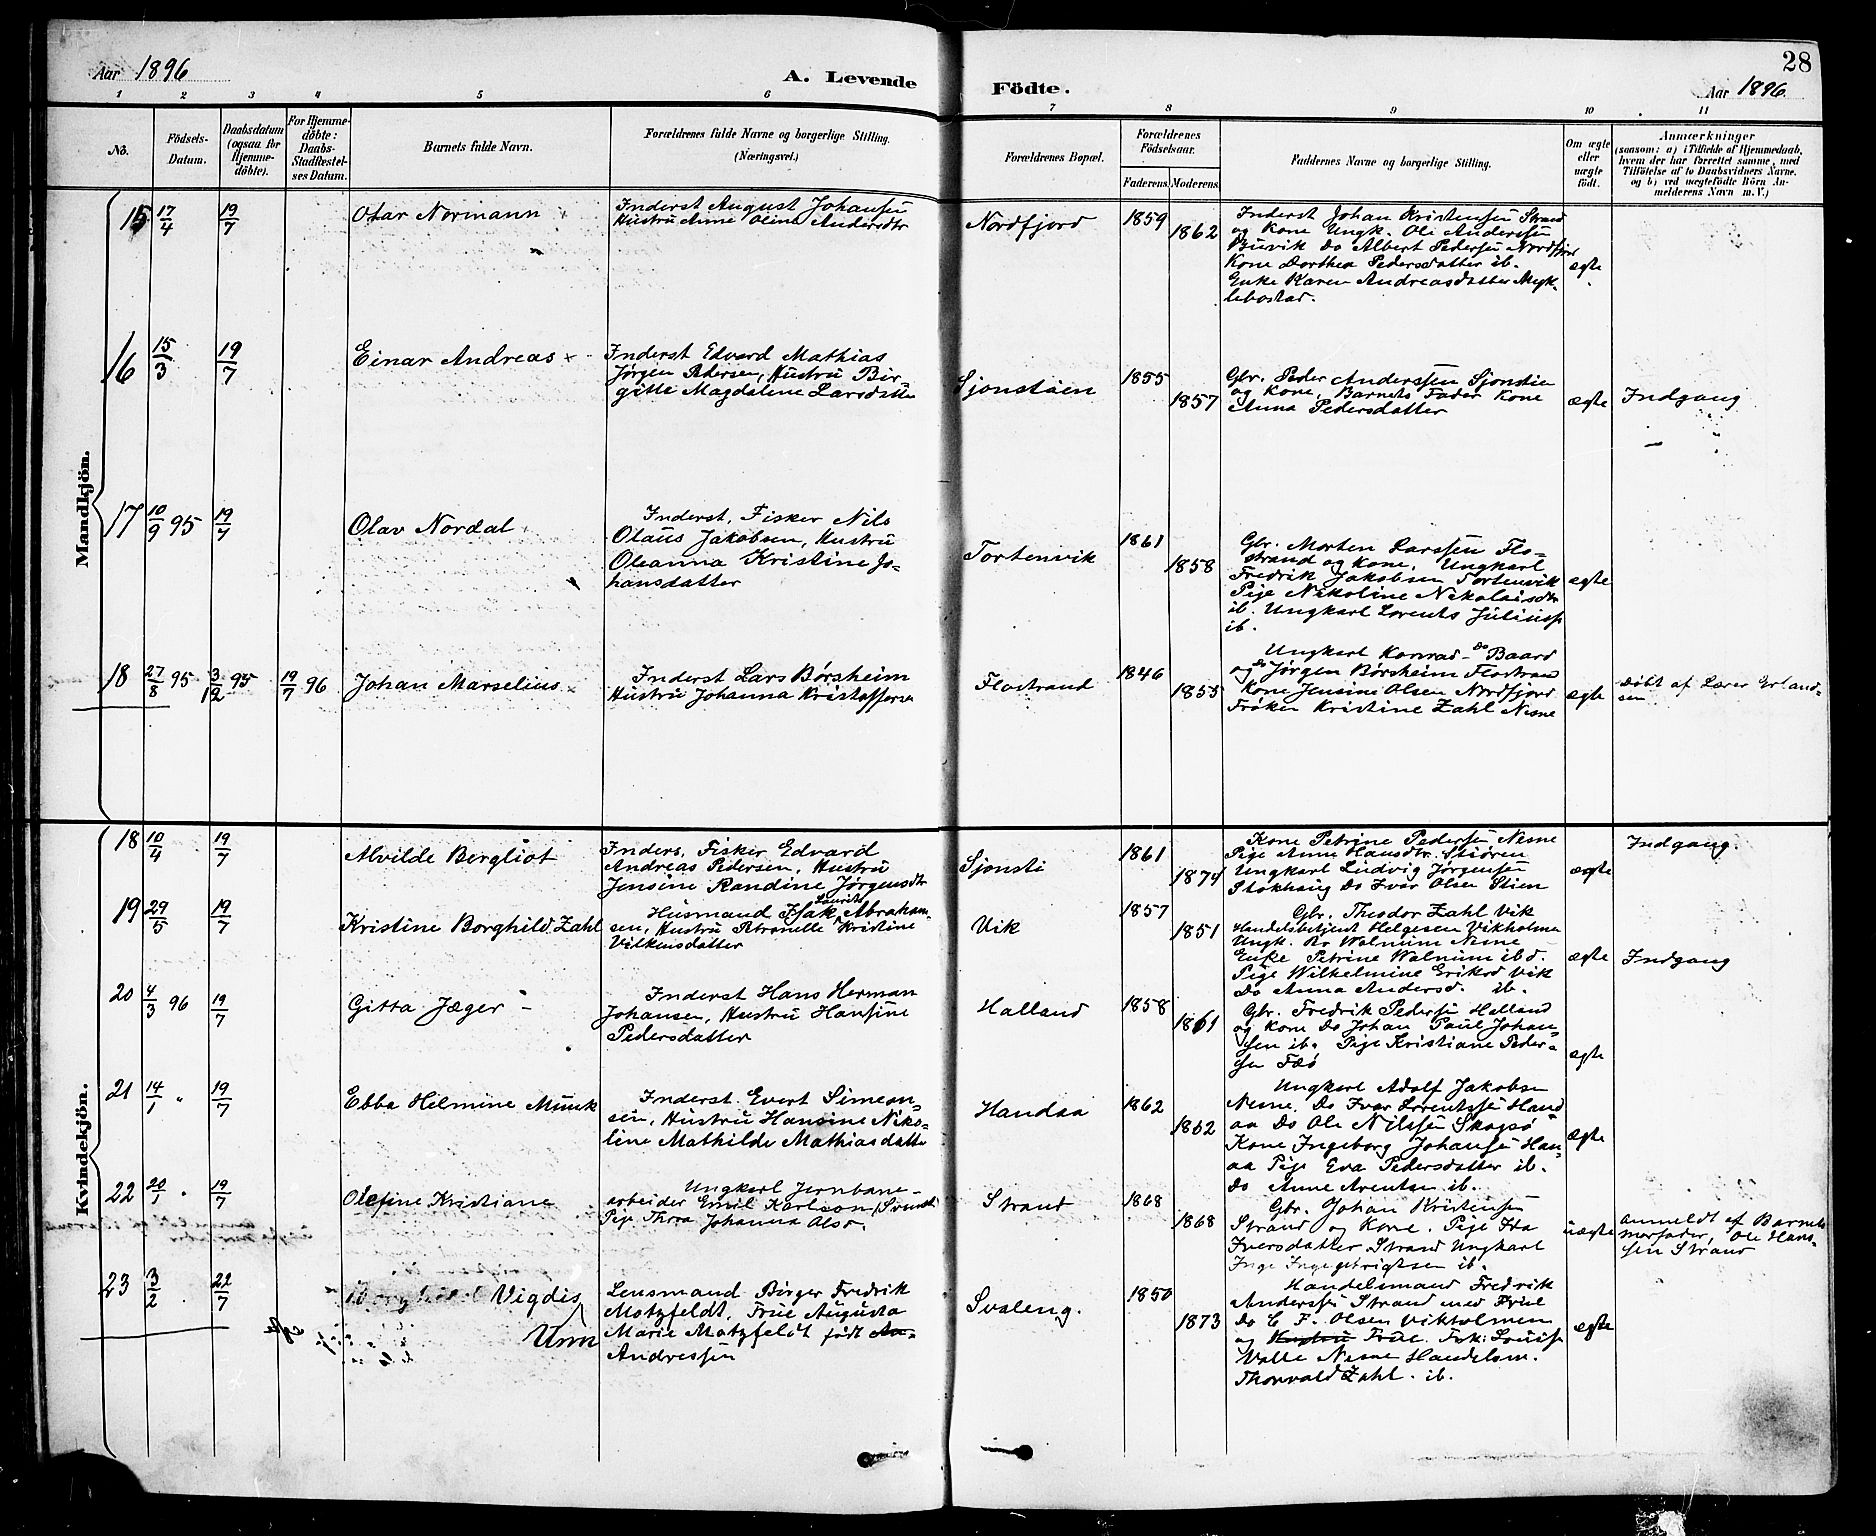 28
Aar 1896
A. Levende Födte.
Aar 1896.
1 2 3 4 5 6 7 8 9 10 11
No.
Födsels-Datum.
Daabsdatum (ogsaa for Hjemme-döbte).
For Hjemme-döbte: Daabs-Stadfæstel-ses Datum.
Barnets fulde Navn.
Forældrenes fulde Navne og borgerlige Stilling. (Næringsvei.)
Forældrenes Bopæl.
Forældrenes Födselsaar.
Faderens. Moderens.
Faddernes Navne og borgerlige Stilling.
Om ægte eller uægte födt.
Anmærkninger
(saasom: a) i Tilfælde af Hjemmedaab, hvem der har forrettet samme, med Tilföielse af to Daabsvidners Navne. og b) ved uægtefödte Börn An-melderens Navn m. V.)
Mandkjön.
15 17/4 19/7 Otar Normann
Inderst August Johansen
Hustru Anne Oline Andersdtr
Nordfjord 1859 1862
Inderst Johan Kristensen Strand
og Kone Ungk. Oli Anderssen
Buvik Do Albert Pedersen Nordfjord
Kone Dorthea Pedersdatter ib.
Enke Karen Andreasdatter Myk-
lebostad.
ægte
16 15/3 19/7 Einar Andreas
Inderst Edvard Mathias
Jørgen Pedersen, Hustru Bir
gitte Magdalene Larsdatter
Sjonstøen 1855 1857
Gbr. Peder Anderssen Sjonstien
og Kone, Barnets Fader Kone
Anna Pedersdatter
ægte Indgang
17 10/9 95 19/7 Olav Nordal
Inderst, Fisker Nils
Olaus Jakobsen, Hustru
Oleanna Kristine Jo-
hansdatter
Tortenvik 1861 1858
Gbr. Morten Larssen Flo-
strand og Kone, Ungkarl
Fredrik Jakobsen Tortenvik
Pige Nikoline Nikolaisdtr
ib. Ungkarl Lorents Juliuss
ib.
ægte
18 27/8 95 3/12 95 19/7 96 Johan Marselius
Inderst Lars Børsheim
Hustru Johanna Kristoffersen
Flostrand 1846 1855
Ungkarl Konrad - Do Baard
og Do Jørgen Børsheim Flostrand
Kone Jensine Olsen Nordfjord
Frøken Kristine Zahl Nesne
ægte
Døbt af Lærer Erland-
sen
Kvindekjön.
18 10/4 19/7 Alvilde Bergliot
Inders, Fisker Edvard
Andreas Pedersen, Hustru
Jensine Randine Jørgensdtr
Sjonsti 1861 1874
Kone Petrine Pedersen Nesne
Pige Anne Hansdtr. Stiøren
Ungkarl Ludvig Jørgensen
Stokhaug Do Ivar Olsen Stien
ægte Indgang.
19 29/5 19/7 Kristine Borghild Zahl
Husmand Isak Laurits Abraham-
sen, Hustru Petronelle Kristine
Vilkensdatter
Vik 1857 1851
Gbr. Theodor Zahl Vik
Handelsbetjent Helgesen Vikholmen
Ungk. Walnum Nesne
Enke Petrine Walnum ibd.
Pige Wilhelmine Eriksd Vik
Do Anna Andersd. ib.
ægte Indgang
20 4/3 96 19/7 Gitta Jæger -
Inderst Hans Herman
Johansen, Hustru Hansine
Pedersdatter
Halland 1858 1861
Gbr. Fredrik Pedersen Halland
og Kone Do Johan Paul Johan-
sen ib. Pige Kristiane Peder-
sen Fæø
ægte
21 14/1 " 19/7 Ebba Helmine Munk
Inderst Evert Simeon-
sen, Hustru Hansine Niko-
line Mathilde Mathiasdatte
Handaa 1862 1862
Ungkarl Adolf Jakobsen
Nesne. Do Ivar Lorentssen Hand
aa Do Ole Nilssen Skogsø
Kone Ingeborg Johansen Han-
aa Pige Eva Pedersdatter ib.
Do Anne Arentsen ib.
ægte
22 20/1 " 19/7 Olefine Kristiane
Ungkarl Jernbane-
arbeider Emil Karlson (Svensk)
Pige Thora Johanna Olsd.
Strand 1868 1868
Gbr. Johan Kristensen
Strand og Kone. Pige Ida
Iversdatter Strand Ungkarl
Inge Ingebrigtsen ib.
uægte
Anmeldt af Barnets
morfader, Ole Hans-
sen Strand
23 3/2 22/7 Vigdis
Unn
Lensmand Birger Fredrik
Motzfeldt, Frue Augusta
Marie Motzfeldt født An-
Andressen
Svaleng. 1850 1873
Handelsmand Fredrik
Anderssen Strand med Frue
Do C. F. Olsen Vikholmen
og Hustru Frue. Frk: Louise
Valle Nesne Handelsm.
Thorvald Zahl. ib.
ægte